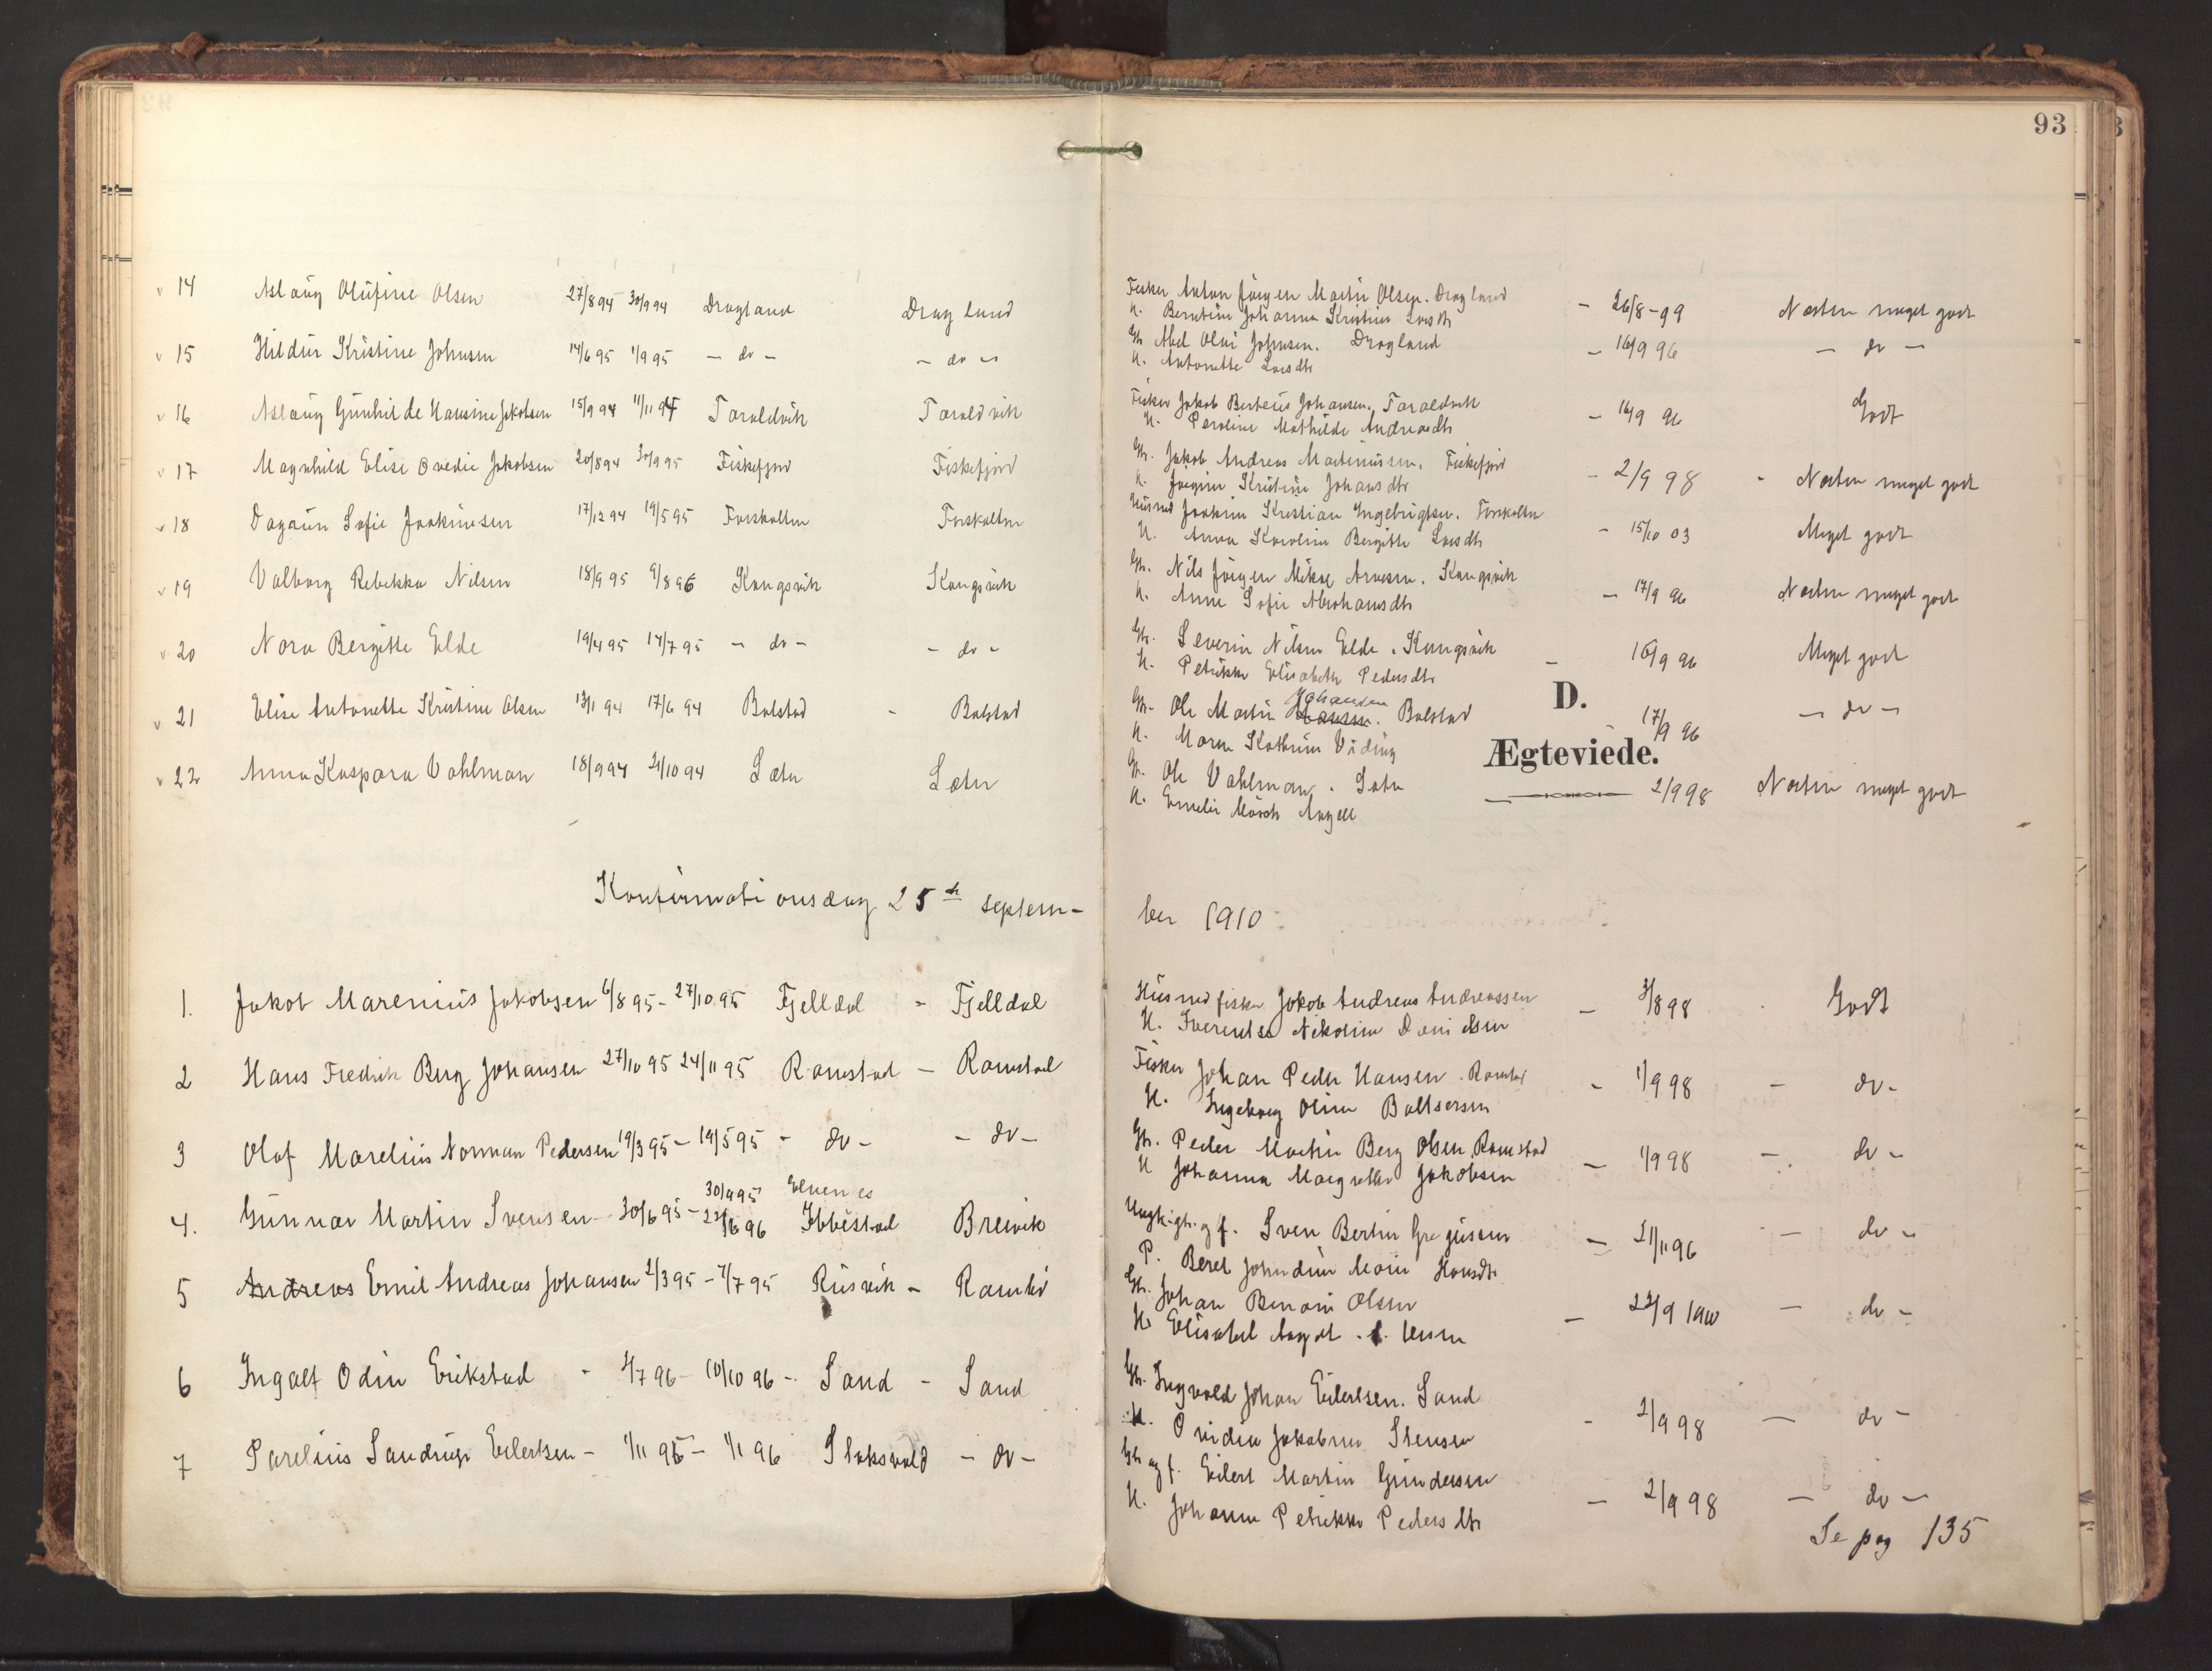 93
14 Aslaug Olufine Olsen 27/8 94 30/9 94 Dragland Dragland
Fisker Anton Jörgen Martin Olsen. Dragland - 26/8-99 Næsten meget godt
H. Berntine Johanna Kristine Larsdtr
15 Hildur Kristine Johnsen 14/6 95 1/9 95 - do - - do -
Gb Abel Olai Johnsen. Dragland - 16/9 96 - do -
H. Antonette Larsdtr
16 Aslaug Gunhilde Hansine Jakobsen 15/9 94 11/11 94 Taraldvik Taraldvik
Fisker Jakob Berteus Johansen. Taraldvik - 16/9 96 Godt
H. Peroline Mathilde Andreasdtr
17 Magnhild Elise Ovedie Jakobsen 20/8 94 30/9 95 Fiskefjord Fiskefjord
Gb. Jakob Andreas Martinussen. Fiskefjord - 2/9 98 - Næsten meget godt
H. Jörgine Kristine Johansdtr
18 Dagaun Sofie Joakimsen 17/12 94 19/5 95 Forskalten Forskalten
Husmd Joakim Kristian Ingebrigtsen. Forskalten - 15/10 03 Meget godt
H. Anna Karoline Bergitte Larsdtr
19 Valborg Rebekka Nilsen 18/9 95 9/8 96 Kongsvik Kongsvik
Gb. Nils Jörgen Mikal Arnesen. Kongsvik - 17/9 96 Næsten meget godt
H. Anne Sofie Abrahamsdtr
20 Nora Bergitte Elde 19/4 95 14/7 95 - do - - do -
Gb. Severin Nilsen Elde. Kongsvik - 16/9 96 Meget godt
H. Petrikke Elisabeth Pedersdtr
D.
21 Elise Antonette Kristine Olsen 13/1 94 17/6 94 Bolstad - Bolstad
Johansen
Gb. Ole Martin Bolstad 17/9 96 - do -
H. Maren Kathrine Viding
Ægteviede.
22 Anna Kaspara Vahlman 18/9 94 21/10 94 Sæter Sæter
Gb. Ole Vahlman. Sæter - 2/9 98 Næsten meget godt
H. Emelie Mörch Angell
Konfirmationsdag 25de septem-
ber 1910
1. Jakob Marenius Jakobsen 6/8 95 - 27/10 95 Fjelldal - Fjelldal
Husmd fisker Jakob Andreas Andreassen - 3/8 98 Godt
H. Nikoline Danielsen
2 Hans Fredrik Berg Johansen 27/10 95 24/11 95 Ramstad - Ramstad
Fisker Johan Peder Hansen. Ramstad - 1/9 98 - do -
H. Ingeborg Oline Baltsersen
3 Olaf Marelius Norman Pedersen 19/3 95 - 19/5 95 - do - - do -
Gb. Peder Martin Berg Olsen, Ramstad - 1/9 98 - do -
H Johanna Margrethe Jakobsen
30/9 95 Evenes
4. Gunnar Martin Svensen 30/6 95 - 22/6 96 Ibbestad Breivik
Ungk. gb. og f. Sven Bertin Gregusen - 21/11 96 - do -
P. Beret Johndine Marie Hansdtr
5 Andreas Emil Andreas Johansen 2/3 95 - 7/7 95 Rusvik - Rambo
Gb. Johan Benoni Olsen - 22/9 1900 - do -
H. Elisabet Aagot
6 Ingolf Odin Erikstad - 4/7 96 - 10/10 96 - Sand - Sand
Gb. Ingvald Johan Eilertsen. Sand - 2/9 98 - do -
H. Ovidie Jakobine Stensen
7 Parelius Sandrup Eilertsen - 1/11 95 - 1/1 96 Staksvold - do -
Gb og f. Eilert Martin Gundersen - 2/9 98 - do -
H. Johanne Petrikke Pedersdtr
Se pag 135